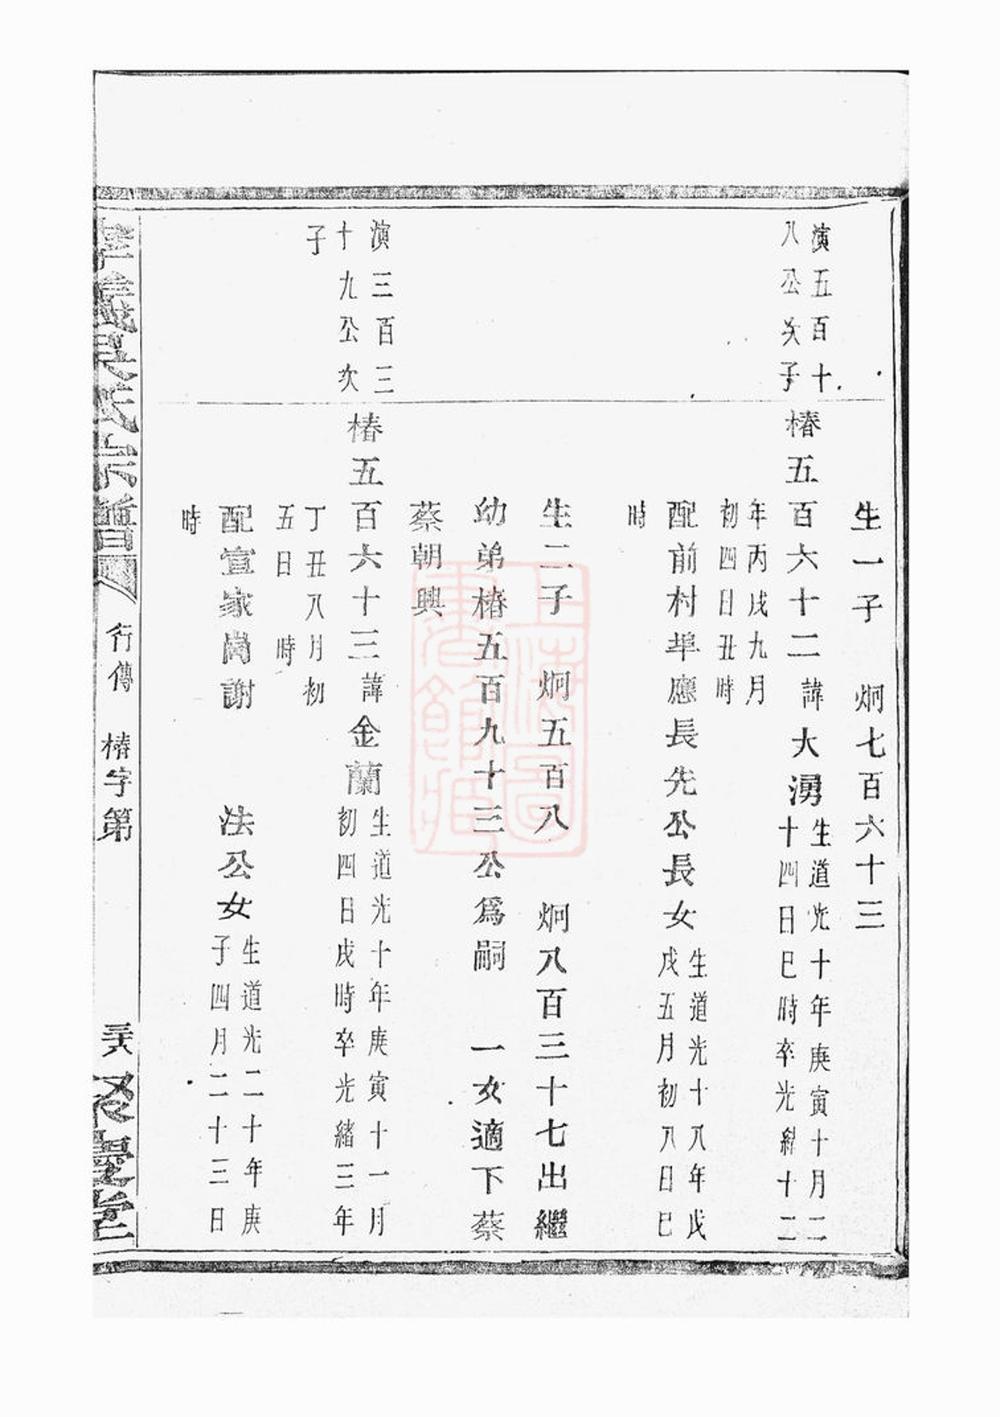 生一子　炯七百六十三
演五百十
八公次子
椿五百六十二諱大湧
生道光十年庚寅十月二
十四日巳時卒光緒十二
年丙戌九月
初四日丑時
配前村埠應長先公長女
生道光十八年戊
戌五月初八日巳
時
生二子　炯五百八　炯八百三十七出繼
幼弟椿五百九十三公爲嗣　一女適下蔡
蔡朝興
演三百三
十九公次
子
椿五百六十三諱金蘭
生道光十年庚寅十一月
初四日戌時卒光緒三年
丁丑八月初
五日　時
配宣家崗謝　法公女
生道光二十年庚
子四月二十三日
時
孝義吳氏宗譜
行傳　椿字第
聚慶堂